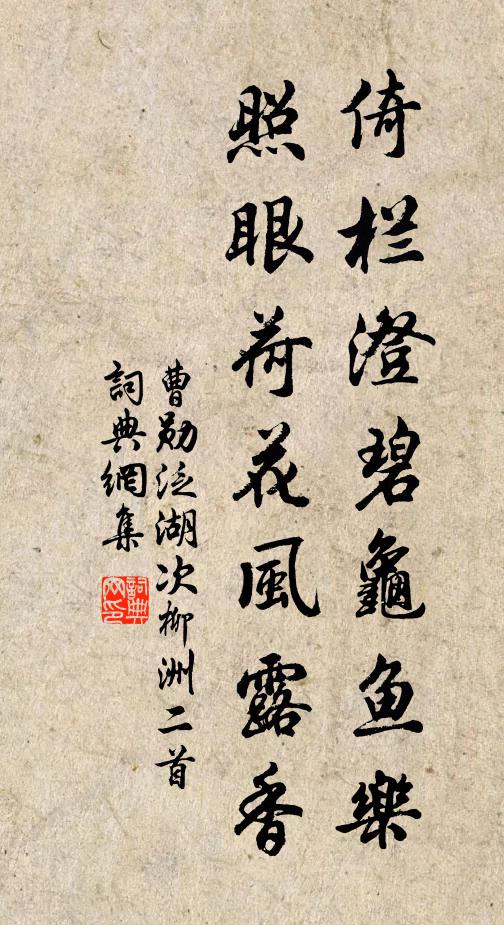 倚栏澄碧龜鱼樂
照眼荷花風露香
曹勋泛湖次柳洲二首
詞典網集
詞典网印